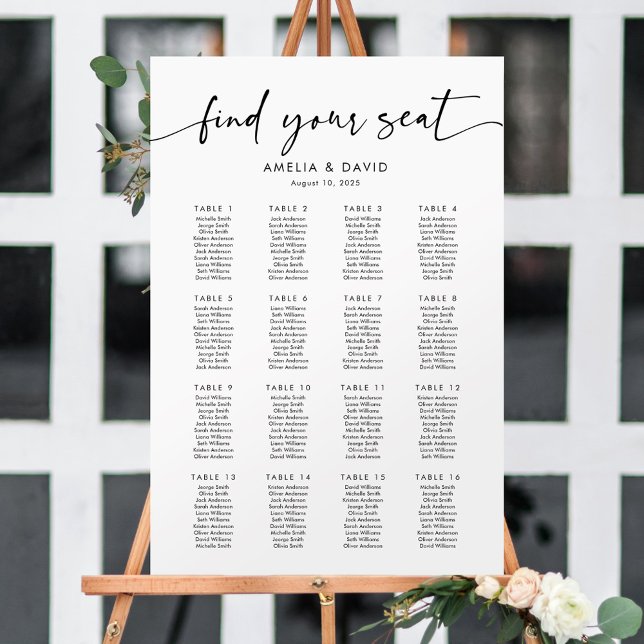 find your seat
AMELIA & DAVID
August 10, 2025
TABLE 1
Michelle Smith
Jeorge Smith
Olivia Smith
Kristen Anderson
Oliver Anderson
Jack Anderson
Sarah Anderson
Liana Williams
Seth Williams
David Williams
TABLE 2
Jack Anderson
Sarah Anderson
Liana Williams
Seth Williams
David Williams
Michelle Smith
Jeorge Smith
Olivia Smith
Kristen Anderson
Oliver Anderson
TABLE 3
David Williams
Michelle Smith
Jeorge Smith
Olivia Smith
Jack Anderson
Sarah Anderson
Liana Williams
Seth Williams
Kristen Anderson
Oliver Anderson
TABLE 4
Jack Anderson
Sarah Anderson
Liana Williams
Seth Williams
Kristen Anderson
Oliver Anderson
David Williams
Michelle Smith
Jeorge Smith
Olivia Smith
TABLE 5
Sarah Anderson
Liana Williams
Seth Williams
Kristen Anderson
Oliver Anderson
David Williams
Michelle Smith
Jeorge Smith
Olivia Smith
Jack Anderson
TABLE 6
Liana Williams
Seth Williams
David Williams
Michelle Smith
Jeorge Smith
Olivia Smith
Kristen Anderson
Oliver Anderson
Jack Anderson
Sarah Anderson
TABLE 7
Jack Anderson
Sarah Anderson
Liana Williams
Seth Williams
Kristen Anderson
Oliver Anderson
David Williams
Michelle Smith
Jeorge Smith
Olivia Smith
TABLE 8
Michelle Smith
Jeorge Smith
Olivia Smith
Kristen Anderson
Oliver Anderson
Jack Anderson
Sarah Anderson
Liana Williams
Seth Williams
David Williams
TABLE 9
David Williams
Michelle Smith
Jeorge Smith
Olivia Smith
Jack Anderson
Sarah Anderson
Liana Williams
Seth Williams
Kristen Anderson
Oliver Anderson
TABLE 10
Kristen Anderson
Oliver Anderson
Jack Anderson
Sarah Anderson
Liana Williams
Seth Williams
David Williams
Michelle Smith
Jeorge Smith
Olivia Smith
TABLE 11
Sarah Anderson
Liana Williams
Seth Williams
David Williams
Michelle Smith
Kristen Anderson
Oliver Anderson
Jeorge Smith
Olivia Smith
Jack Anderson
TABLE 12
Kristen Anderson
Oliver Anderson
David Williams
Michelle Smith
Jeorge Smith
Olivia Smith
Jack Anderson
Sarah Anderson
Liana Williams
Seth Williams
TABLE 13
Jeorge Smith
Olivia Smith
Jack Anderson
Sarah Anderson
Liana Williams
Seth Williams
Kristen Anderson
Oliver Anderson
David Williams
Michelle Smith
TABLE 14
Kristen Anderson
Oliver Anderson
Jack Anderson
Sarah Anderson
Liana Williams
Seth Williams
David Williams
Michelle Smith
Jeorge Smith
Olivia Smith
TABLE 15
David Williams
Michelle Smith
Jeorge Smith
Olivia Smith
Jack Anderson
Sarah Anderson
Liana Williams
Seth Williams
Kristen Anderson
Oliver Anderson
TABLE 16
Michelle Smith
Jeorge Smith
Olivia Smith
Jack Anderson
Sarah Anderson
Liana Williams
Seth Williams
Kristen Anderson
Oliver Anderson
David Williams